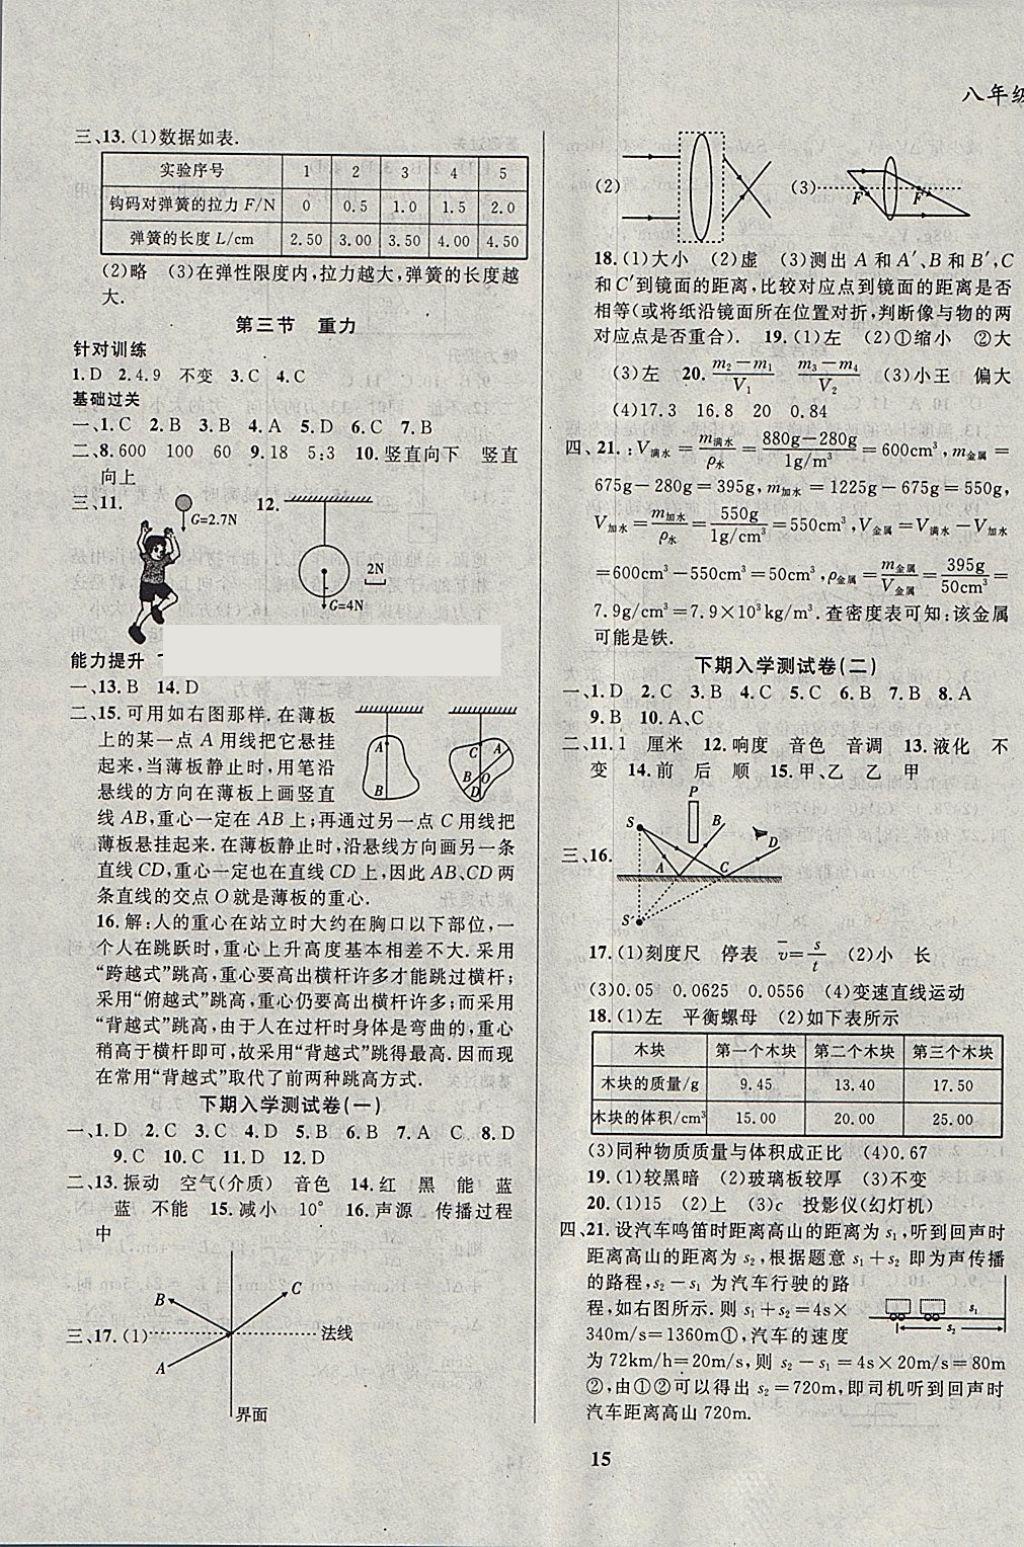 八年级
三、13.(1)数据如表.
实验序号 1 2 3 4 5
钩码对弹簧的拉力F/N 0 0.5 1.0 1.5 2.0
弹簧的长度L/cm 2.50 3.00 3.50 4.00 4.50
(2)略 (3)在弹性限度内,拉力越大,弹簧的长度越
大.
第三节 重力
针对训练
1.D 2.4.9 不变 3.C 4.C
基础过关
一、1.C 2.B 3.B 4.A 5.D 6.C 7.B
二、8.600 100 60 9.18 5:3 10.竖直向下 竖直
向上
三、11. G=2.7N 12. 2N G=4N
能力提升
一、13.B 14.D
二、15.可用如右图那样.在薄板
上的某一点A用线把它悬挂
起来,当薄板静止时,用笔沿
悬线的方向在薄板上画竖直
线AB,重心一定在AB上;再通过另一点C用线把
薄板悬挂起来.在薄板静止时,沿悬线方向画另一条
直线CD,重心一定也在直线CD上,因此AB、CD两
条直线的交点O就是薄板的重心.
A B A C B O D
16.解:人的重心在站立时大约在胸口以下部位,一
个人在跳跃时,重心上升高度基本相差不大.采用
“跨越式”跳高,重心要高出横杆许多才能跳过横杆;
采用“俯越式”跳高,重心仍要高出横杆许多;而采用
“背越式”跳高,由于人在过杆时身体是弯曲的,重心
稍高于横杆即可,故采用“背越式”跳得最高.因而现
在常用“背越式”取代了前两种跳高方式.
下期入学测试卷(一)
一、1.D 2.C 3.C 4.D 5.B 6.C 7.A C 8.D
9.C 10.C 11.D 12.D
二、13.振动 空气(介质) 音色 14.红 黑 能 蓝
蓝 不能 15.减小 10° 增大 16.声源 传播过程
中
三、17.(1) B C A 法线
界面
(2) (3) F F′
18.(1)大小 (2)虚 (3)测出A和A′、B和B′,C
和C′到镜面的距离,比较对应点到镜面的距离是否
相等(或将纸沿镜面所在位置对折,判断像与物的两
对应点是否重合). 19.(1)左 (2)①缩小 ②大
(3)左 20.(m₂-m₁)/V₁ (m₃-m₄)/V₂ (3)小王 偏大
(4)17.3 16.8 20 0.84
四、21.:V满水=m满水/ρ水=(880g-280g)/(1g/m³)=600cm³,m金属=
675g-280g=395g,m加水=1225g-675g=550g,
V加水=m加水/ρ水=550g/(1g/cm³)=550cm³,V金属=V满水-V加水
=600cm³-550cm³=50cm³,ρ金属=m金属/V金属=395g/50cm³=
7.9g/cm³=7.9×10³kg/m³.查密度表可知:该金属
可能是铁.
下期入学测试卷(二)
一、1.D 2.C 3.B 4.C 5.C 6.B 7.B 8.A
9.B 10.A、C
二、11.1 厘米 12.响度 音色 音调 13.液化 不
变 14.前 后 顺 15.甲、乙 乙 甲
三、16. P S B D A C S′
17.(1)刻度尺 停表 v̄=s/t (2)小 长
(3)0.05 0.0625 0.0556 (4)变速直线运动
18.(1)左 平衡螺母 (2)如下表所示
木块 第一个木块 第二个木块 第三个木块
木块的质量/g 9.45 13.40 17.50
木块的体积/cm³ 15.00 20.00 25.00
(3)同种物质质量与体积成正比 (4)0.67
19.(1)较黑暗 (2)玻璃板较厚 (3)不变
20.(1)15 (2)上 (3)c 投影仪(幻灯机)
四、21.设汽车鸣笛时距离高山的距离为s₁,听到回声时
距离高山的距离为s₂,根据题意s₁+s₂即为声传播
的路程,s₂-s₁为汽车行驶的路
程,如右图所示.则s₁+s₂=4s×
340m/s=1360m①,汽车的速度
为72km/h=20m/s,则s₂-s₁=4s×20m/s=80m
②,由①②可以得出s₂=720m,即司机听到回声时
汽车距离高山720m.
s₁
s₂
15